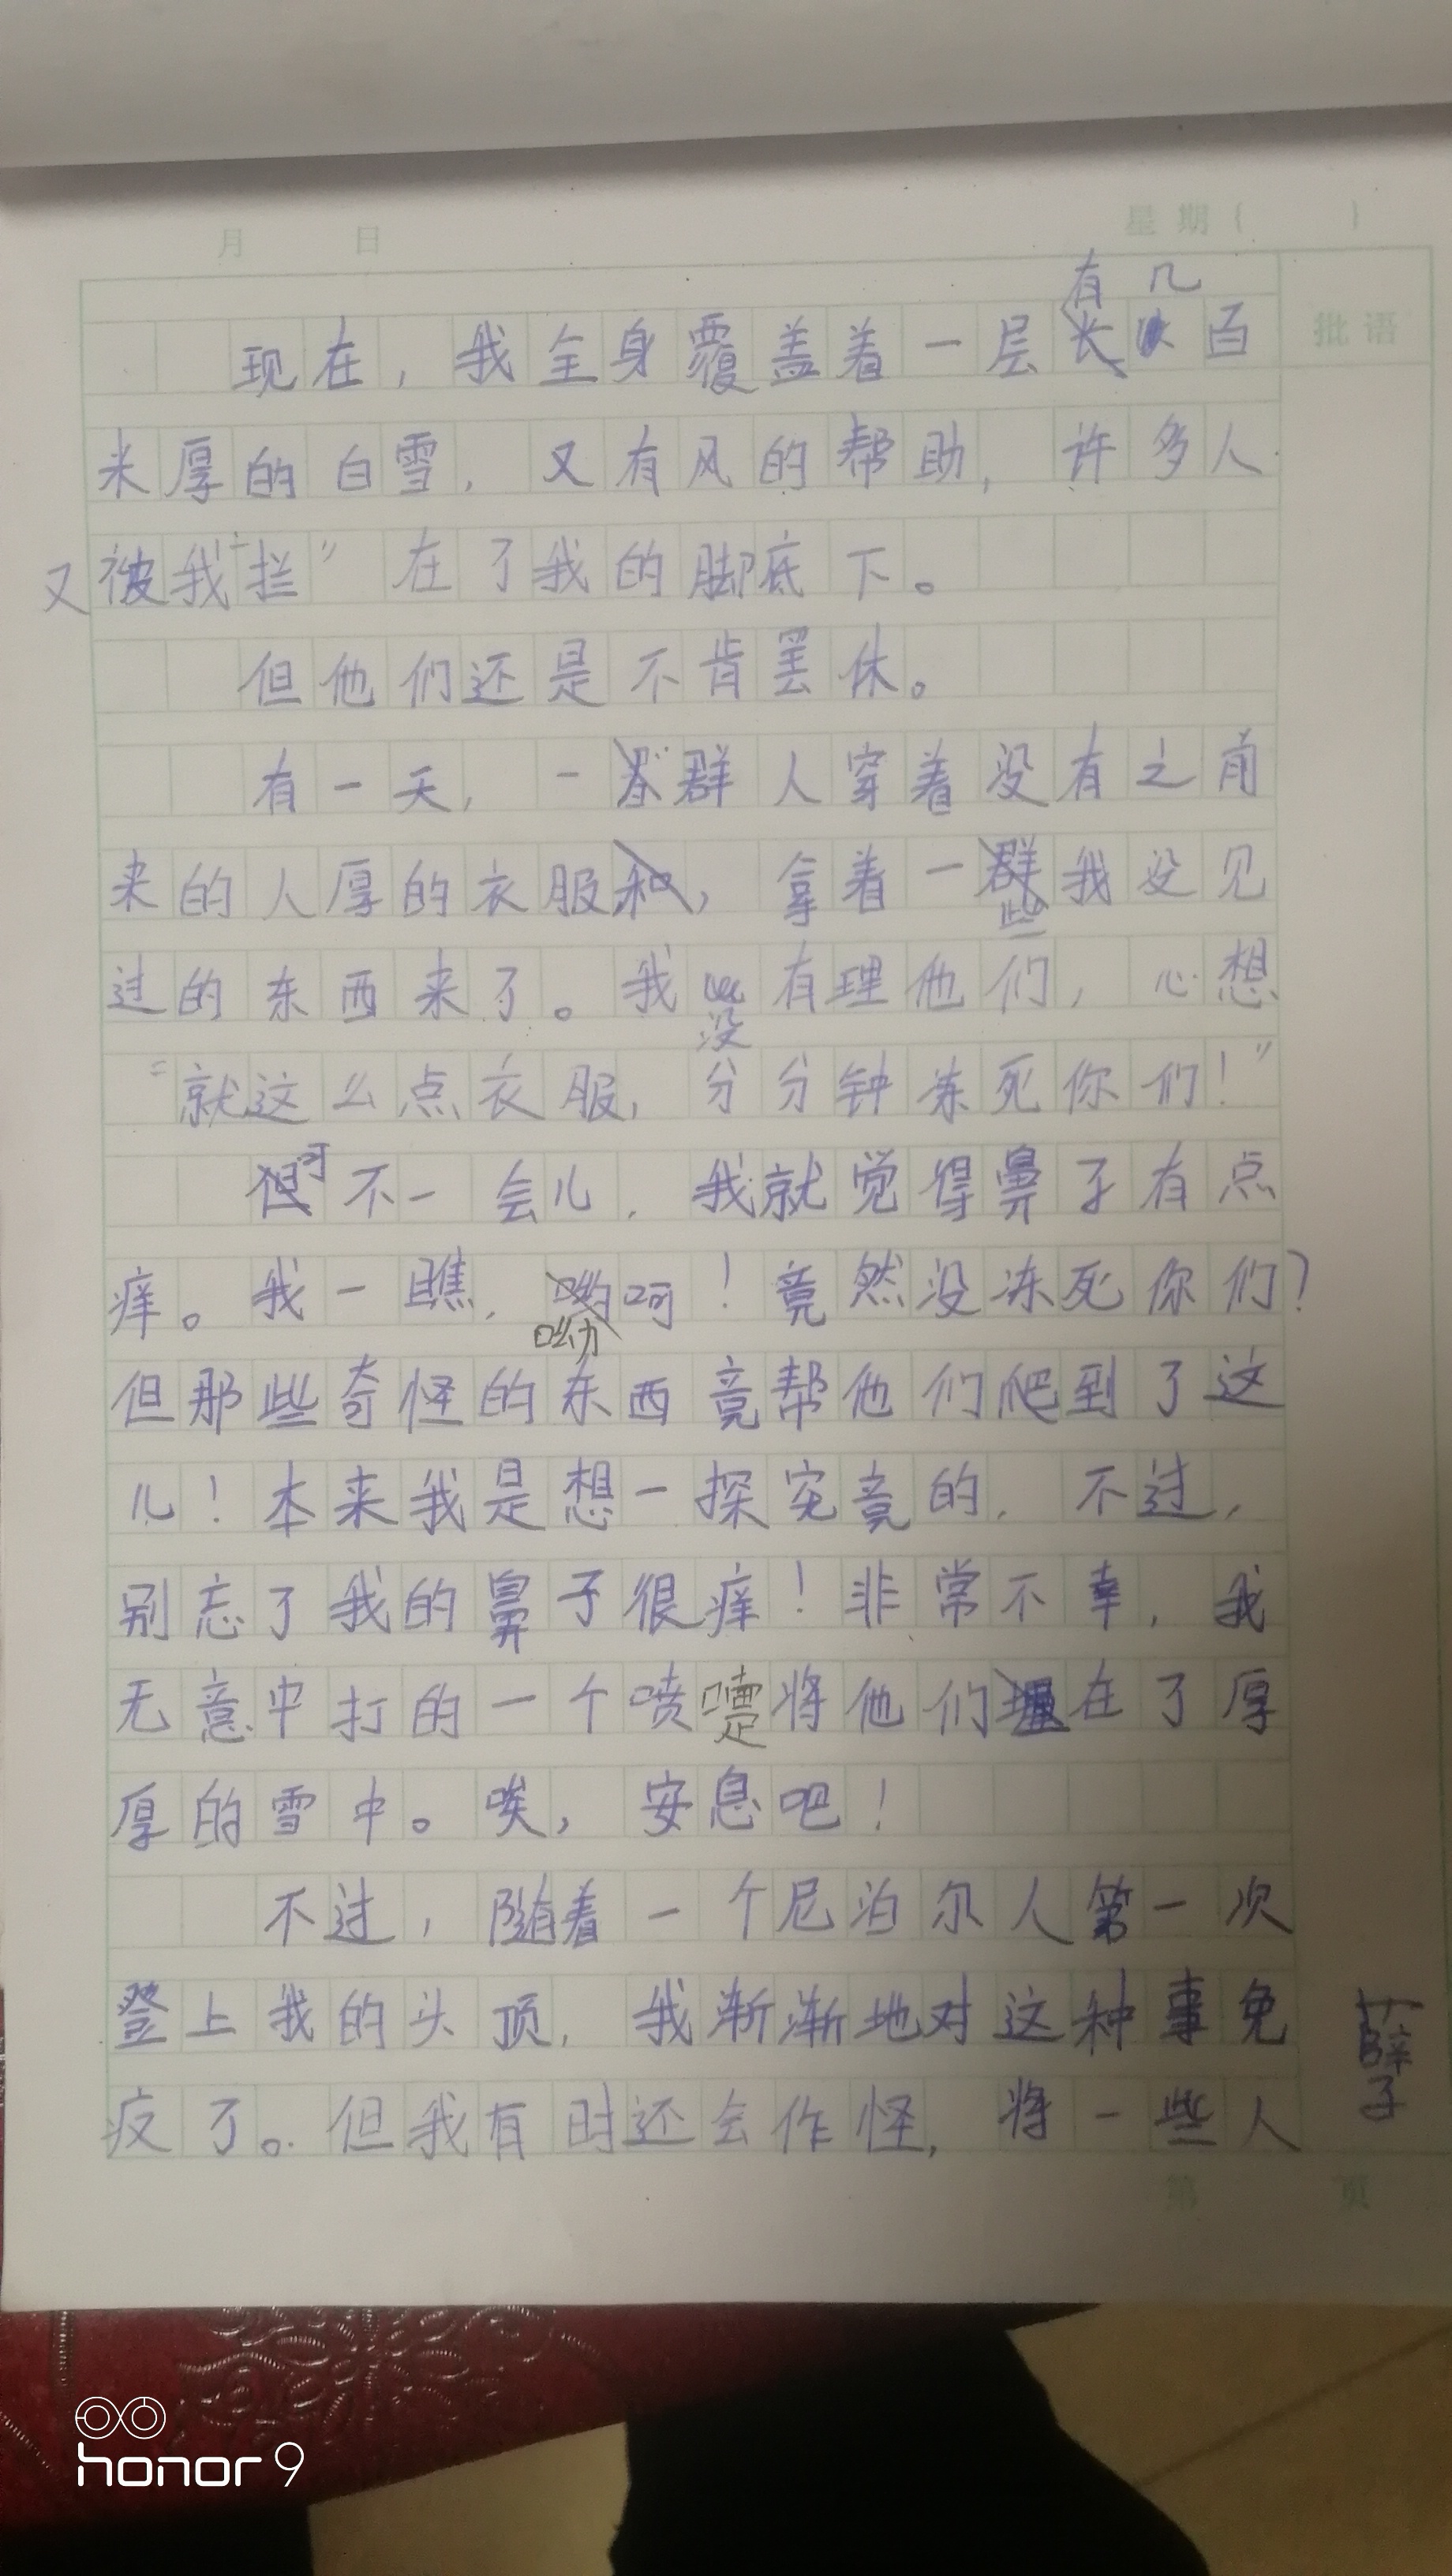 月 日 星期( )
批语
现在，我全身覆盖着一层有几百
米厚的白雪，又有风的帮助，许多人
又被我“拦”在了我的脚底下。
但他们还是不肯罢休。
有一天，一群人穿着没有之前
来的人厚的衣服，拿着一些我没见
过的东西来了。我没有理他们，心想
“就这么点衣服，分分钟冻死你们！”
可不一会儿，我就觉得鼻子有点
痒。我一瞧，呦呵！竟然没冻死你们？
但那些奇怪的东西竟帮他们爬到了这
儿！本来我是想一探究竟的，不过，
别忘了我的鼻子很痒！非常不幸，我
无意中打的一个喷嚏将他们埋在了厚
厚的雪中。唉，安息吧！
不过，随着一个尼泊尔人第一次
登上我的头顶，我渐渐地对这种事免
疫了。但我有时还会作怪，将一些人
薛子
第 页
honor 9